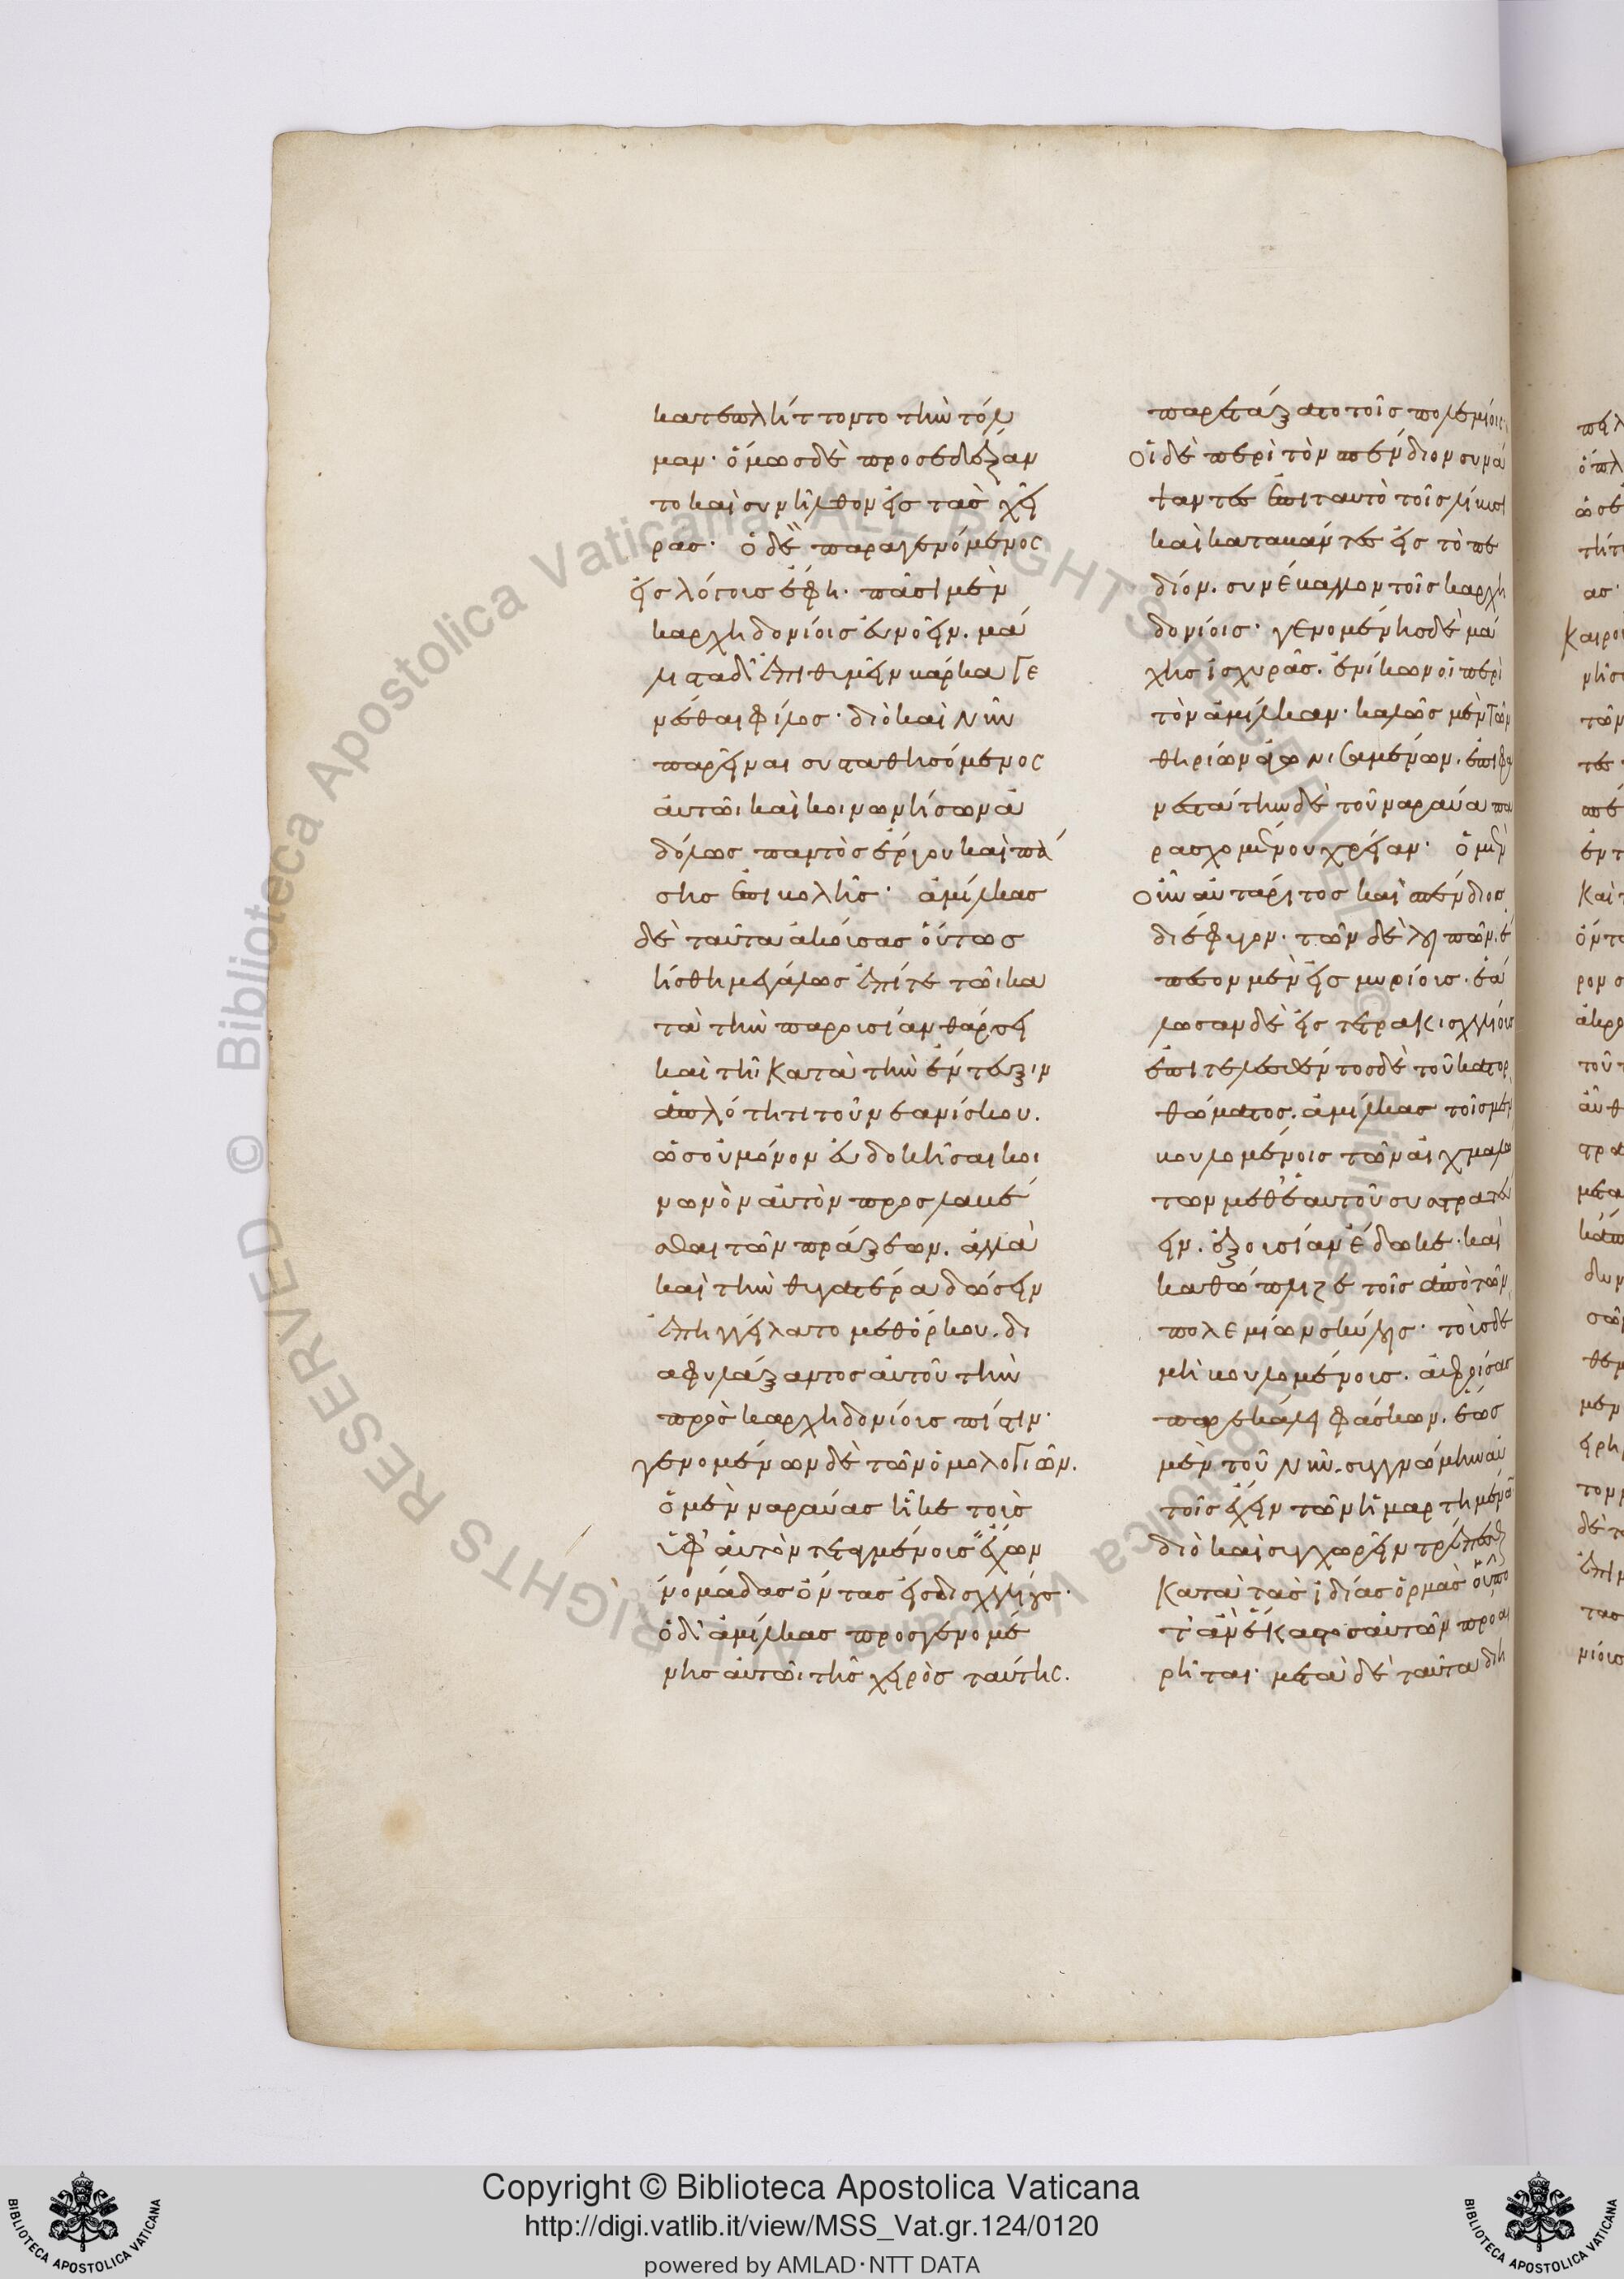 κατεπλήττοντο τὴν τόλ
μαν· ὅμως δὲ προσεδέξαν
το καὶ συνῆλθον εἰς τὰς χεῖ
ρας· ὁ δὲ παραγενόμενος
εἰς λόγους ἔφη· πᾶσι μὲν
καρχηδονίοις εὐνοεῖν. μά
λιστα δ' ἐπιθυμεῖν βάρκα γε
νέσθαι φίλος· διὸ καὶ νῦν
παρεῖναι συσταθησόμενος
αὐτῶι καὶ κοινωνήσων ἀ
δόλως παντὸς ἔργου καὶ πά
σης ἐπιβολῆς· ἀμίλκας
δὲ ταῦτα ἀκούσας οὕτως
ἥσθη μεγάλως ἐπί τε τῶι κα
τὰ τὴν παρουσίαν θάρσει
καὶ τῆι κατὰ τὴν ἔντευξιν
ἁπλότητι τοῦ νεανίσκου.
ὡς οὐ μόνον εὐδοκῆσαι κοι
νωνὸν αὐτὸν προσλαβέ
σθαι τῶν πράξεων. ἀλλὰ
καὶ τὴν θυγατέρα δώσειν
ἐπηγγείλατο μεθόρκου. δι
αφυλάξαντος αὐτοῦ τὴν
πρὸς καρχηδονίους πίστιν·
γενομένων δὲ τῶν ὁμολογιῶν.
ὁ μὲν ναραύας ἧκε τοὺς
ὑφ' αὑτὸν τεταγμένους ἔχων
νομάδας ὄντας εἰς δισχιλίους·
ὁ δ' ἀμίλκας προσγενομέ
νης αὐτῶι τῆς χειρὸς ταύτης.
παρετάξατο τοῖς πολεμίοις·
οἱ δὲ περὶ τὸν σπένδιον συνά
ψαντες ἐπιταυτὸ τοῖς λίβυσι
καὶ καταβάντες εἰς τὸ πε
δίον. συνέβαλλον τοῖς καρχη
δονίοις· γενομένης δὲ μά
χης ἰσχυρᾶς. ἐνίκων οἱ περὶ
τὸν ἀμίλκαν· καλῶς μὲν τῶν
θηρίων ἀγωνισαμένων. ἐπιφα
νεστάτην δὲ τοῦ ναραύα πα
ρασχομένου χρείαν· ὁ μὲν
οὖν αὐτάριτος καὶ σπένδιος
διέφυγον· τῶν δὲ λοιπῶν. ἔ
πεσον μὲν εἰς μυρίους. ἑά
λωσαν δὲ εἰς τετρακισχιλίους
ἐπιτελεσθέντος δὲ τοῦ κατορ
θώματος. ἀμίλκας τοῖς μὲν
βουλομένοις τῶν αἰχμαλώ
των μεθ' ἑαυτοῦ συστρατεύ
ειν. ἐξουσίαν ἔδωκε· καὶ
καθώπλιζε τοῖς ἀπὸ τῶν
πολεμίων σκύλοις· τοὺς δὲ
μὴ βουλομένους. ἀθροίσας
παρεκάλει φάσκων. ἕως
μὲν τοῦ νῦν. συγγνώμην αὐ
τοῖς ἔχειν τῶν ἡμαρτημένων
διὸ καὶ συγχωρεῖν τρέπεσθ
κατὰ τὰς ἰδίας ὁρμὰς οὗ πο
τ' ἂν ἕκαστος αὐτῶν προαι
ρῆται· μετὰ δὲ ταῦτα διη
Copyright © Biblioteca Apostolica Vaticana
http://digi.vatlib.it/view/MSS_Vat.gr.124/0120
powered by AMLAD·NTT DATA
BIBLIOTECA APOSTOLICA VATICANA
BIBLIOTECA APOSTOLICA VATICANA